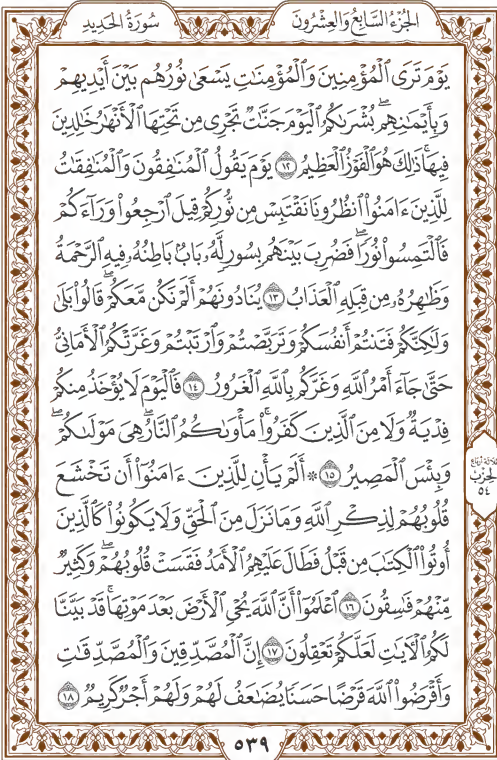 الجُزْءُ السَّابِعُ وَالعِشْرُونَ
سُورَةُ الحَدِيدِ
يَوْمَ تَرَى ٱلْمُؤْمِنِينَ وَٱلْمُؤْمِنَٰتِ يَسْعَىٰ نُورُهُم بَيْنَ أَيْدِيهِمْ
وَبِأَيْمَٰنِهِمۖ بُشْرَىٰكُمُ ٱلْيَوْمَ جَنَّٰتٌ تَجْرِى مِن تَحْتِهَا ٱلْأَنْهَٰرُ خَٰلِدِينَ
فِيهَاۚ ذَٰلِكَ هُوَ ٱلْفَوْزُ ٱلْعَظِيمُ ١٢ يَوْمَ يَقُولُ ٱلْمُنَٰفِقُونَ وَٱلْمُنَٰفِقَٰتُ
لِلَّذِينَ ءَامَنُوا۟ ٱنظُرُونَا نَقْتَبِسْ مِن نُّورِكُمْ قِيلَ ٱرْجِعُوا۟ وَرَآءَكُمْ
فَٱلْتَمِسُوا۟ نُورًاۖ فَضُرِبَ بَيْنَهُم بِسُورٍ لَّهُۥ بَابٌۢ بَاطِنُهُۥ فِيهِ ٱلرَّحْمَةُ
وَظَٰهِرُهُۥ مِن قِبَلِهِ ٱلْعَذَابُ ١٣ يُنَادُونَهُمْ أَلَمْ نَكُن مَّعَكُمْۖ قَالُوا۟ بَلَىٰ
وَلَٰكِنَّكُمْ فَتَنتُمْ أَنفُسَكُمْ وَتَرَبَّصْتُمْ وَٱرْتَبْتُمْ وَغَرَّتْكُمُ ٱلْأَمَانِىُّ
حَتَّىٰ جَآءَ أَمْرُ ٱللَّهِ وَغَرَّكُم بِٱللَّهِ ٱلْغَرُورُ ١٤ فَٱلْيَوْمَ لَا يُؤْخَذُ مِنكُمْ
فِدْيَةٌ وَلَا مِنَ ٱلَّذِينَ كَفَرُوا۟ۚ مَأْوَىٰكُمُ ٱلنَّارُۖ هِىَ مَوْلَىٰكُمْۖ
وَبِئْسَ ٱلْمَصِيرُ ١٥ ۞ أَلَمْ يَأْنِ لِلَّذِينَ ءَامَنُوٓا۟ أَن تَخْشَعَ
قُلُوبُهُمْ لِذِكْرِ ٱللَّهِ وَمَا نَزَلَ مِنَ ٱلْحَقِّ وَلَا يَكُونُوا۟ كَٱلَّذِينَ
أُوتُوا۟ ٱلْكِتَٰبَ مِن قَبْلُ فَطَالَ عَلَيْهِمُ ٱلْأَمَدُ فَقَسَتْ قُلُوبُهُمْۖ وَكَثِيرٌ
مِّنْهُمْ فَٰسِقُونَ ١٦ ٱعْلَمُوٓا۟ أَنَّ ٱللَّهَ يُحْىِ ٱلْأَرْضَ بَعْدَ مَوْتِهَاۚ قَدْ بَيَّنَّا
لَكُمُ ٱلْءَايَٰتِ لَعَلَّكُمْ تَعْقِلُونَ ١٧ إِنَّ ٱلْمُصَّدِّقِينَ وَٱلْمُصَّدِّقَٰتِ
وَأَقْرَضُوا۟ ٱللَّهَ قَرْضًا حَسَنًا يُضَٰعَفُ لَهُمْ وَلَهُمْ أَجْرٌ كَرِيمٌ ١٨
ثلاثة أرباع
الحزب
٥٤
٥٣٩